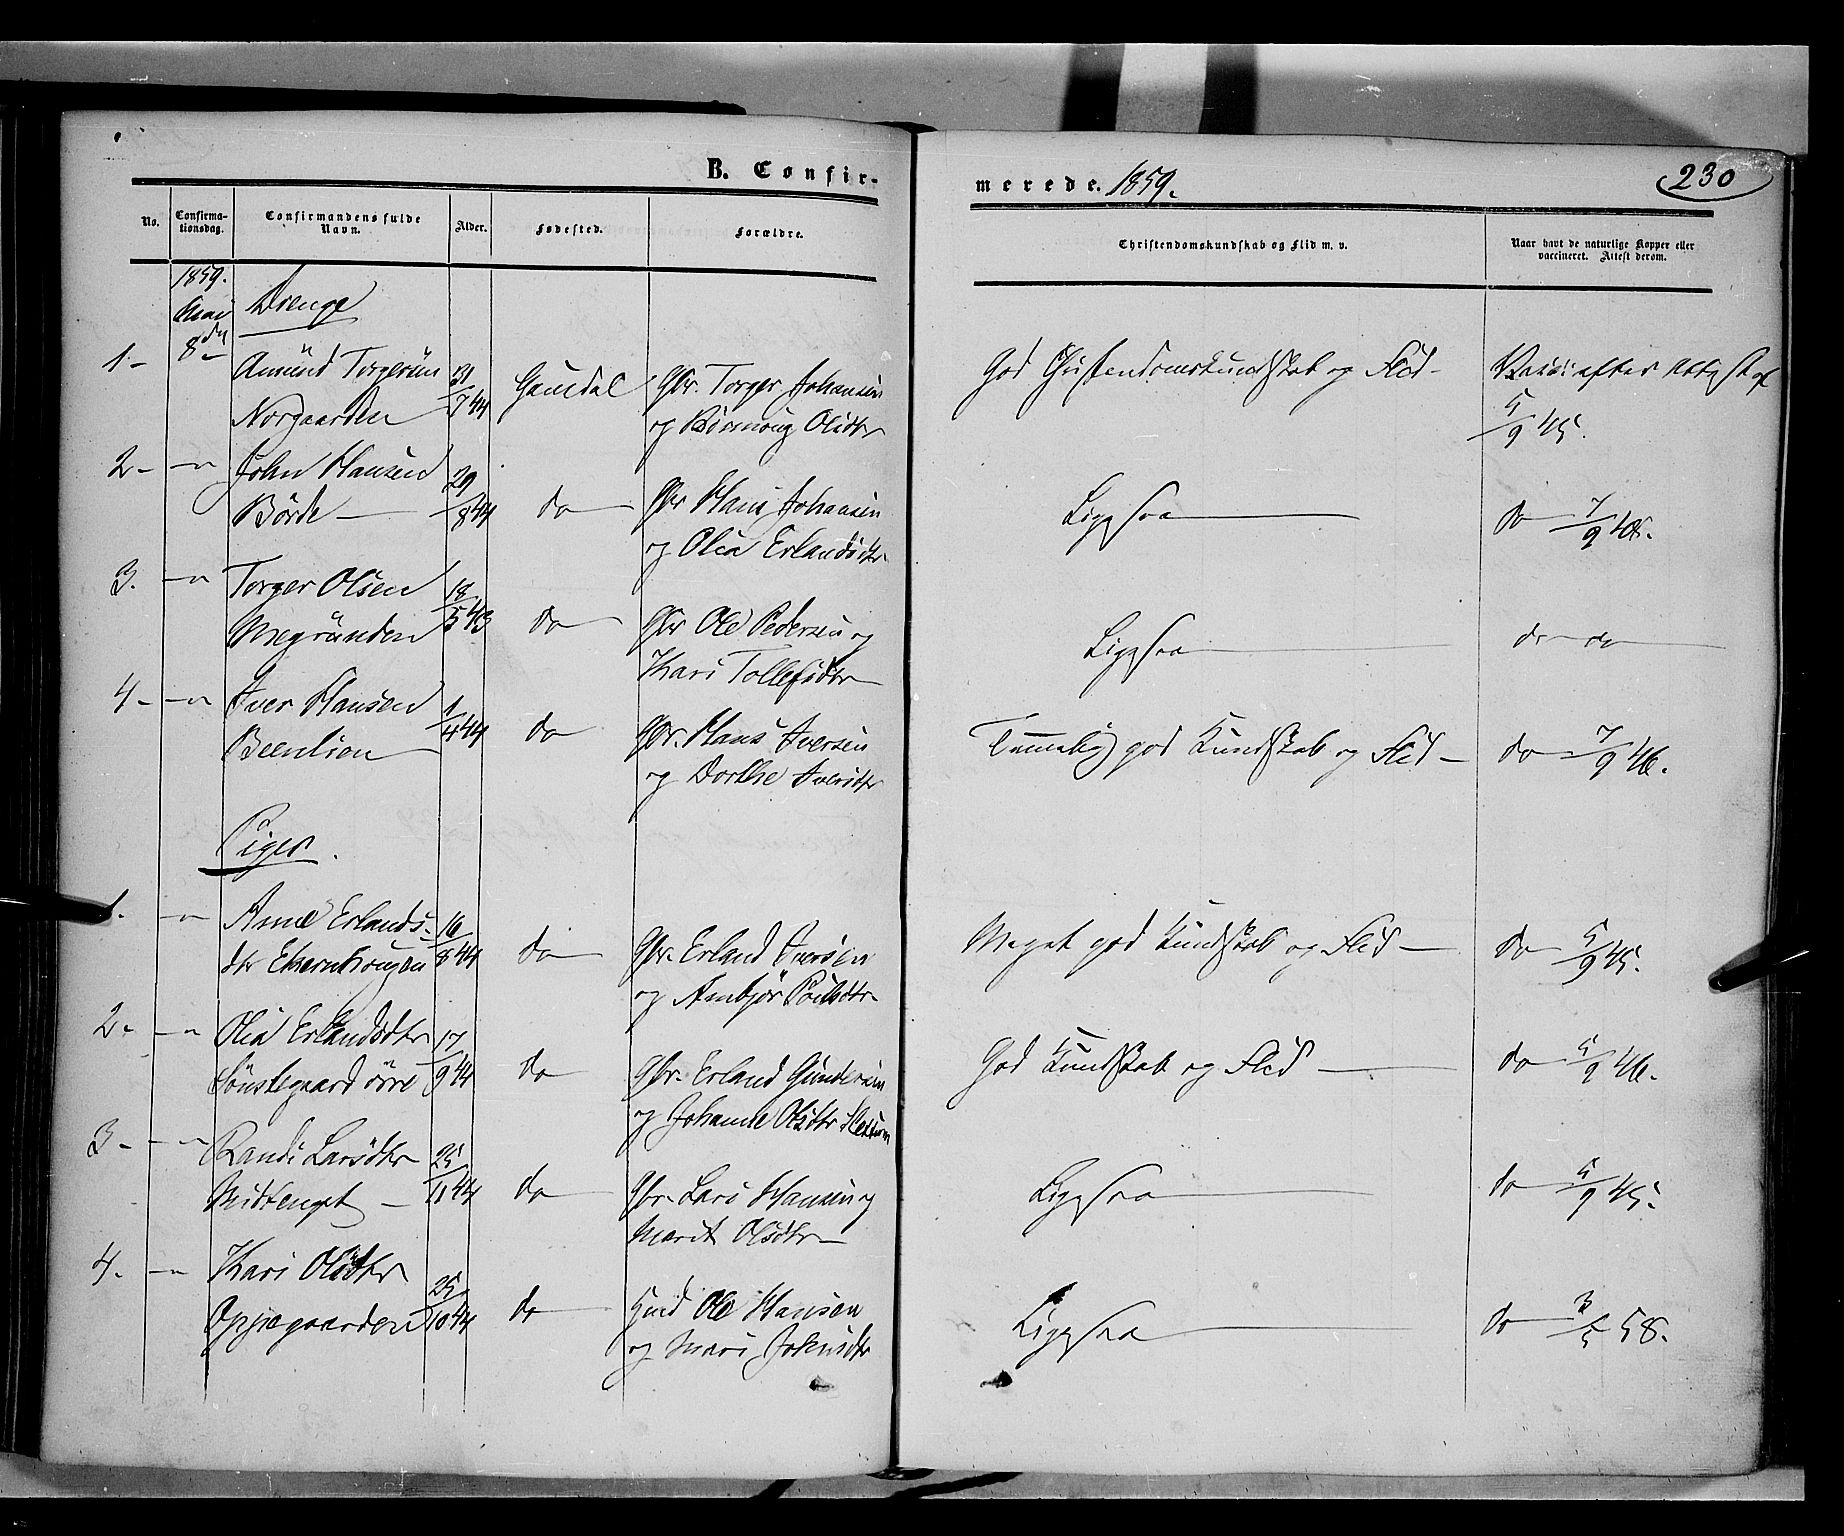 B. Confirmerede. 1859.
230
No.
Confirmationsdag.
Confirmandens fulde Navn.
Alder.
Fødested.
Forældre.
Christendomskundskab og Flid m. v.
Naar havt de naturlige Kopper eller vaccineret. Attest derom.
1859.
Mai
8de
Drenge
1- Amund Torgersen 31/7 44 Gausdal Gbr. Torger Johansen God Christendomskundskab og Flid- Vaxi: efter Attest af
Norgaarden og Rönnoug Olsdtr 5/9 45.
2- -"- John Hansen 29/8 44 do Gbr Hans Johansen Ligesaa do 7/9 45.
Börde og Olea Erlandsdtr
3. -"- Torger Olsen 18/5 43 do Gbr Ole Pedersen og Ligesaa do do
Megrunden Kari Tollefsdtr
4- -"- Iver Hansen 1/4 44 do Gbr. Hans Iversen Temmelig god Kundskab og Flid- do 7/9 46.
Beenlien og Dorthe Iversdtr
Piger.
1. -"- Anne Erlands- 16/8 44 do Gbr. Erland Iversen Meget god Kundskab og Flid- do 5/9 45.
dtr og Ambjör
2- -"- Olea Erlandsdtr 17/9 44 do Gbr. Erland Gundersen God Kundskab og Flid do 5/9 46.
Sönstegaard övre og Johanne Olsdtr
3- -"- Randi Larsdtr 25/11 44 do Gbr. Lars Hansen og Ligesaa do 5/9 45.
Midtenget Marit Olsdtr
4. -"- Kari Olsdtr 25/10 44 do Ole Hansen Ligesaa do 58.
Oppegaarden og Mari Johnsdtr